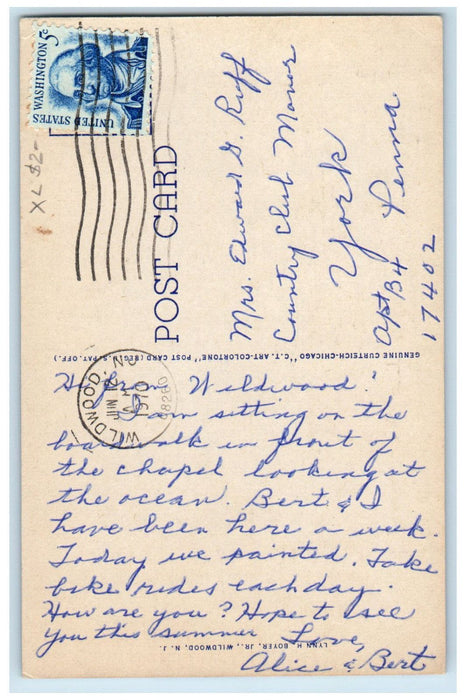 WASHINGTON 5c
UNITED STATES
XL $2-
POST CARD
Mrs. Edward G. Ruff
Country Club Manor
York
Apt B4 Penna.
17402
GENUINE CURTEICH-CHICAGO "C.T. ART-COLORTONE" POST CARD (REG. U.S. PAT. OFF.)
WILDWOOD, NJ
JUN
1970
08260
Wildwood!
I am sitting on the
boardwalk in front of
the chapel looking at
the ocean. Bert & I
have been here a week.
Today we painted. Take
bike rides each day.
How are you? Hope to see
you this summer
Love,
Alice & Bert
LYNN H. BOYER, JR., WILDWOOD, N. J.